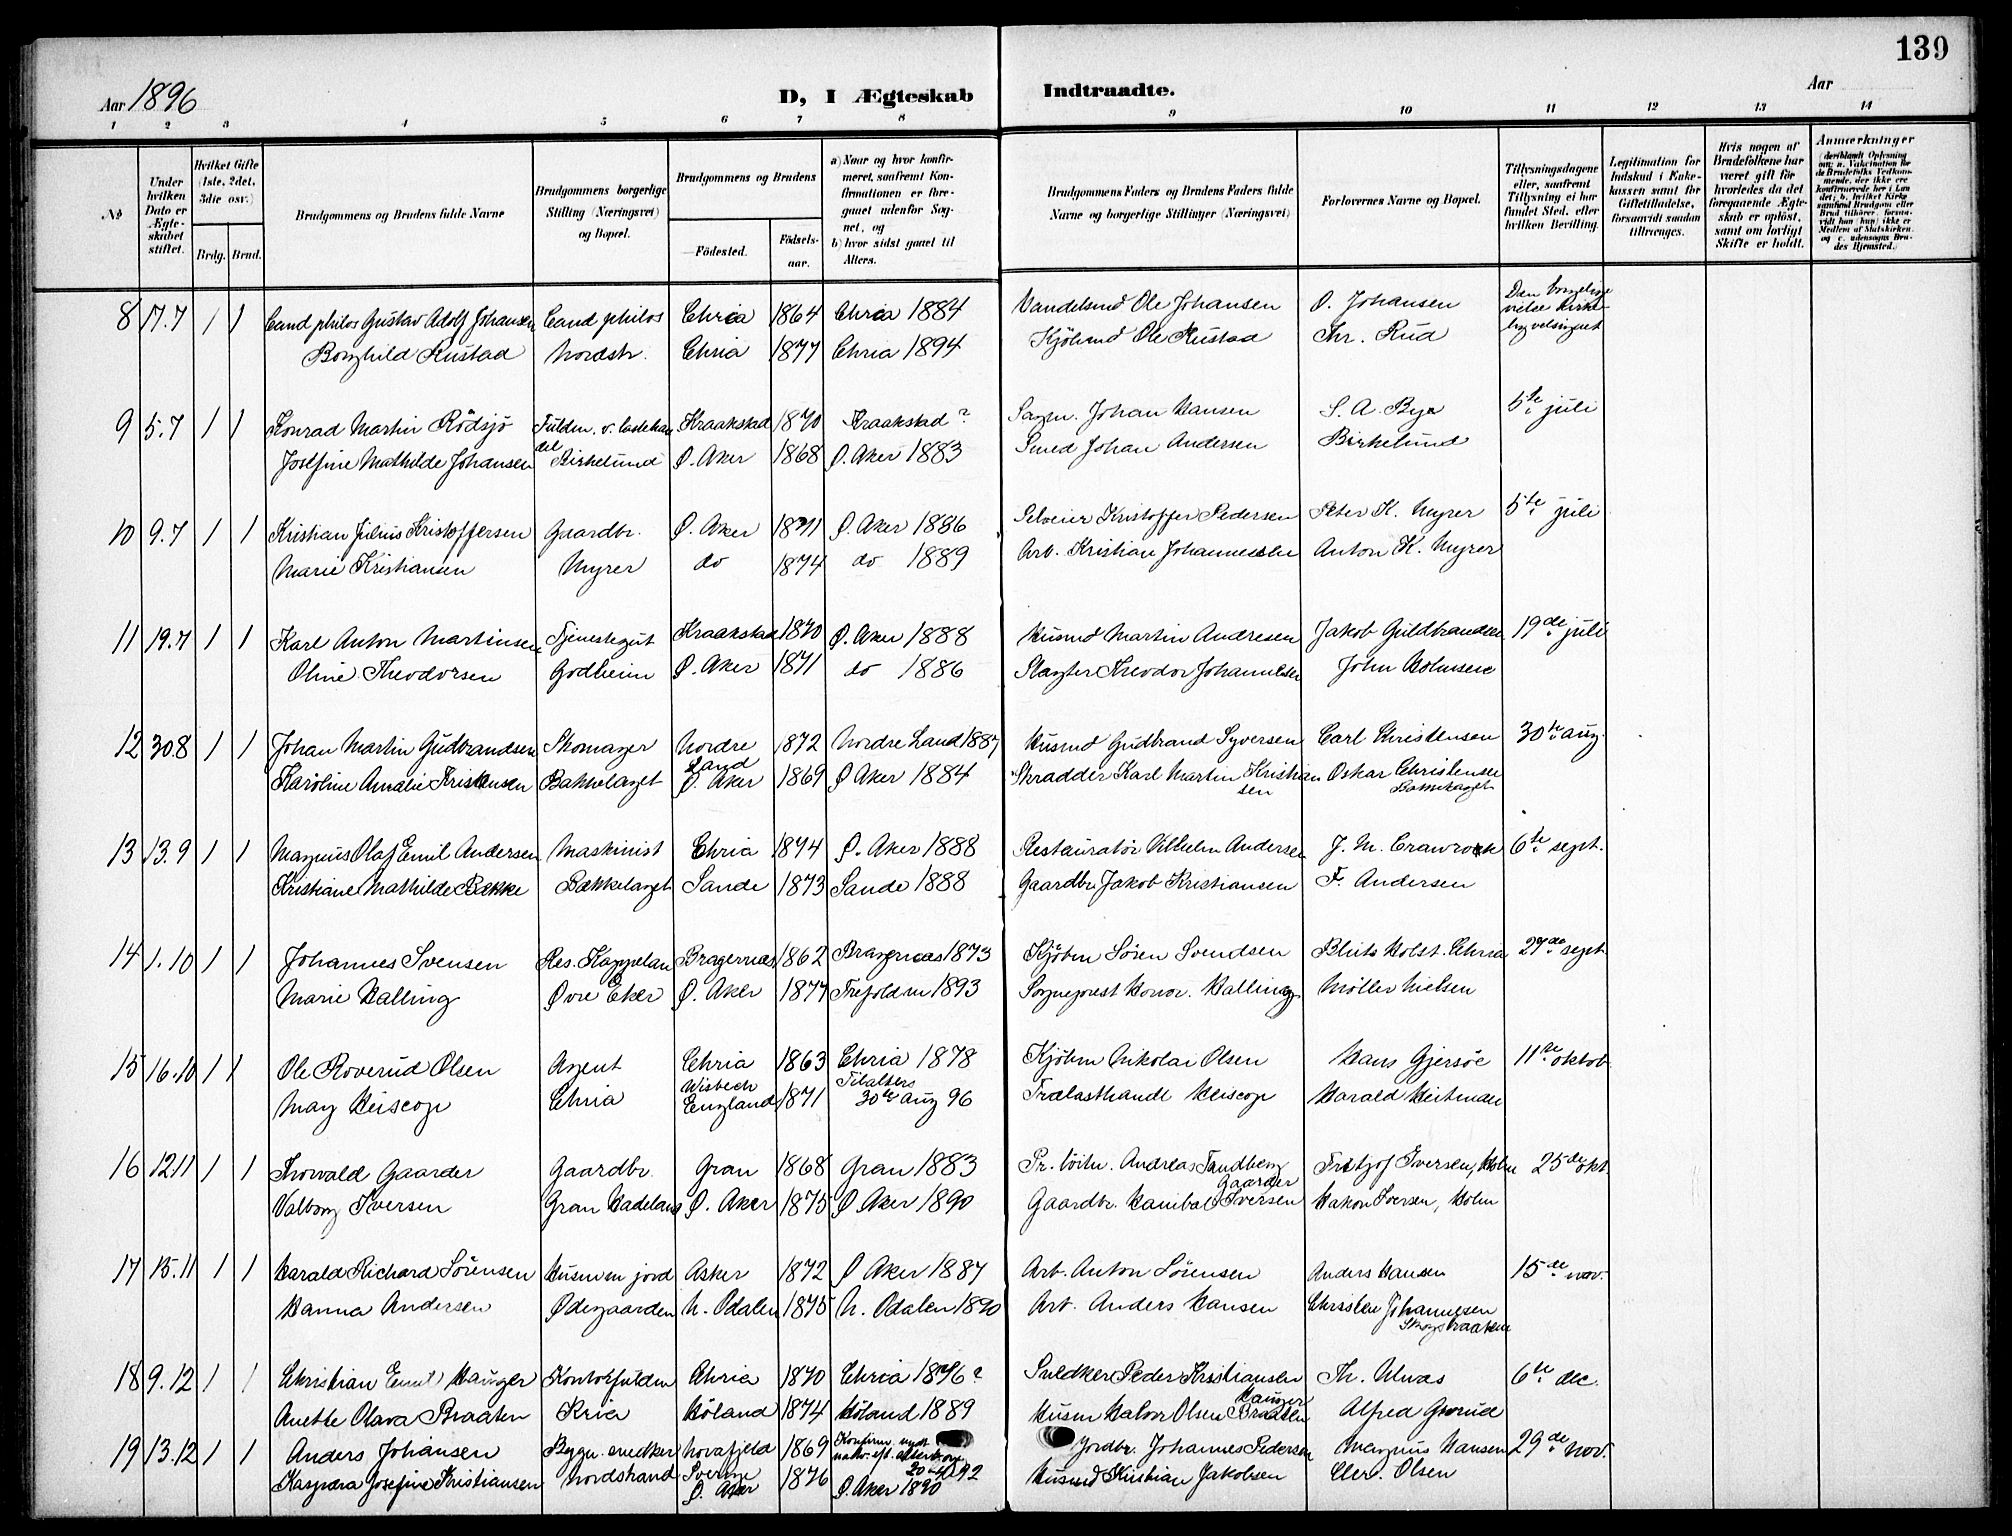 139
Aar 1896
D, I Ægteskab Indtraadte.
Aar
1 2 3 4 5 6 7 8 9 10 11 12 13 14
№
Under hvilken Dato er Ægteskabet stiftet.
Hvilket Gifte (1ste, 2det, 3die osv.)
Brdg. Brud.
Brudgommens og Brudens fulde Navne
Brudgommens borgerlige Stilling (Næringsvei) og Bopæl.
Brudgommens og Brudens
Födested. Födselsaar.
a) Naar og hvor konfirmeret, saafremt Konfirmationen er foregaaet udenfor Sognet, og
b) hvor sidst gaaet til Alters.
Brudgommens Faders og Brudens Faders fulde Navne og borgerlige Stillinger (Næringsvei)
Forlovernes Navne og Bopæl.
Tillysningsdagene eller, saafremt Tillysning ei har fundet Sted, efter hvilken Bevilling.
Legitimation for Indskud i Enkekassen samt for Giftetilladelse, forsaavidt saadan tiltrænges.
Hvis nogen af Brudefolkene har været gift för hvorledes da det foregaaende Ægteskab er oplöst, samt om lovligt Skifte er holdt.
Anmærkninger
8 17.7 1 1 Cand philos Gustav Adolf Johansen Cand philos Chria 1864 Chria 1884 Vandelsmd Ole Johansen O. Johansen Den borgelige
Borghild Rustad Nordstr. Chria 1877 Chria 1894 Kjöbmd Ole Rustad Chr. Rud
9 5.7 1 1 Konrad Martin Rödsjö Fuldm. v. Kraakstad 1870 Kraakstad ? Sagm. Johan Hansen S. A. Bye 5te juli
Josefine Mathilde Johansen Birkelund Ø. Aker 1868 Ø. Aker 1883 Smed Johan Andersen Birkelund
10 9.7 1 1 Kristian Julius Kristoffersen Gaardbr. Ø. Aker 1871 Ø. Aker 1886 Selveier Kristoffer Pedersen Peter K. Myrer 5te juli
Marie Kristiansen Myrer do 1874 do 1889 Arb. Kristian Johannessen Anton K. Myrer
11 19.7 1 1 Karl Anton Martinsen Tjenestegut Kraakstad 1870 Ø. Aker 1888 Husmd Martin Andresen Jakob Guldbrandsen 19de juli
Oline Theodorsen Godheim Ø. Aker 1871 do 1886 Slagter Theodor Johannessen John Holmsen
12 30.8 1 1 Johan Martin Gudbrandsen Skomager Nordre Land 1872 Nordre Land 1887 Husmd Gudbrand Syversen Carl Christensen 30te aug.
Karoline Amalie Kristiansen Bækkelaget Ø. Aker 1869 Ø Aker 1884 Skrædder Karl Martin Kristiansen Oskar Christensen
13 13.9 1 1 Magnus Olaf Emil Andersen Maskinist Chria 1874 Ø. Aker 1888 Restauratör Vilhelm Andersen J. M. 6te sept.
Kristiane Mathilde Bække Bækkelaget Sande 1873 Sande 1888 Gaardbr Jakob Kristiansen F. Andersen
14 1.10 1 1 Johannes Svensen Res. Kappelan Bragernæs 1862 Bragernæs 1873 Kjöbm Sören Svendsen Holst. Chria 27de sept.
Marie Halling Øvre Eker Ø. Aker 1877 Trefoldm 1893 Sogneprest Honor. Halling Möller Nielsen
15 16.10 1 1 Ole Roverud Olsen Agent Chria 1863 Chria 1878 Kjöbm Nikolai Olsen Hans Gjersöe 11te oktob.
May Heiscop Chria Wisbech England 1871 Tilalters 30te aug 96 Trælasthandl Heiscop Harald Heitman
16 12.11 1 1 Thorvald Gaarder Gaardbr. Gran 1868 Gran 1883 Pr. löitn. Andreas Tandberg Gaarder Fritjof Iversen, Holm 25de okt
Valborg Iversen Gran Hadeland Ø. Aker 1875 Ø Aker 1890 Gaardbr. Hanibal Iversen Hakon Iversen, Holm
17 15.11 1 1 Harald Richard Sörensen Husm m jord Asker 1872 Ø Aker 1887 Arb. Anton Sörensen Anders Hansen 15de nov.
Hanna Andersen Ødegaarden N. Odalen 1875 N. Odalen 1890 Arb. Anders Hansen Christen Johannesen Skogsbraaten
18 9.12 1 1 Christian Emil Hauger Kontorfuldm Chria 1870 Chria 1886? Snedker Peder Kristiansen Hauger Th. 6te dec.
Anette Olava Braaten Kria Höland 1874 Höland 1889 Husm Halvor Olsen Braaten Alfred
19 13.12 1 1 Anders Johansen Bygn. snedker Sverige 1869 Konfirm. Jordbr. Johannes Pedersen Magnus Hansen 29de nov.
Kaspara Josefine Kristiansen Nordstrand Ø. Aker 1876 Ø. Aker 1890 Husmd Kristian Jakobsen Olsen